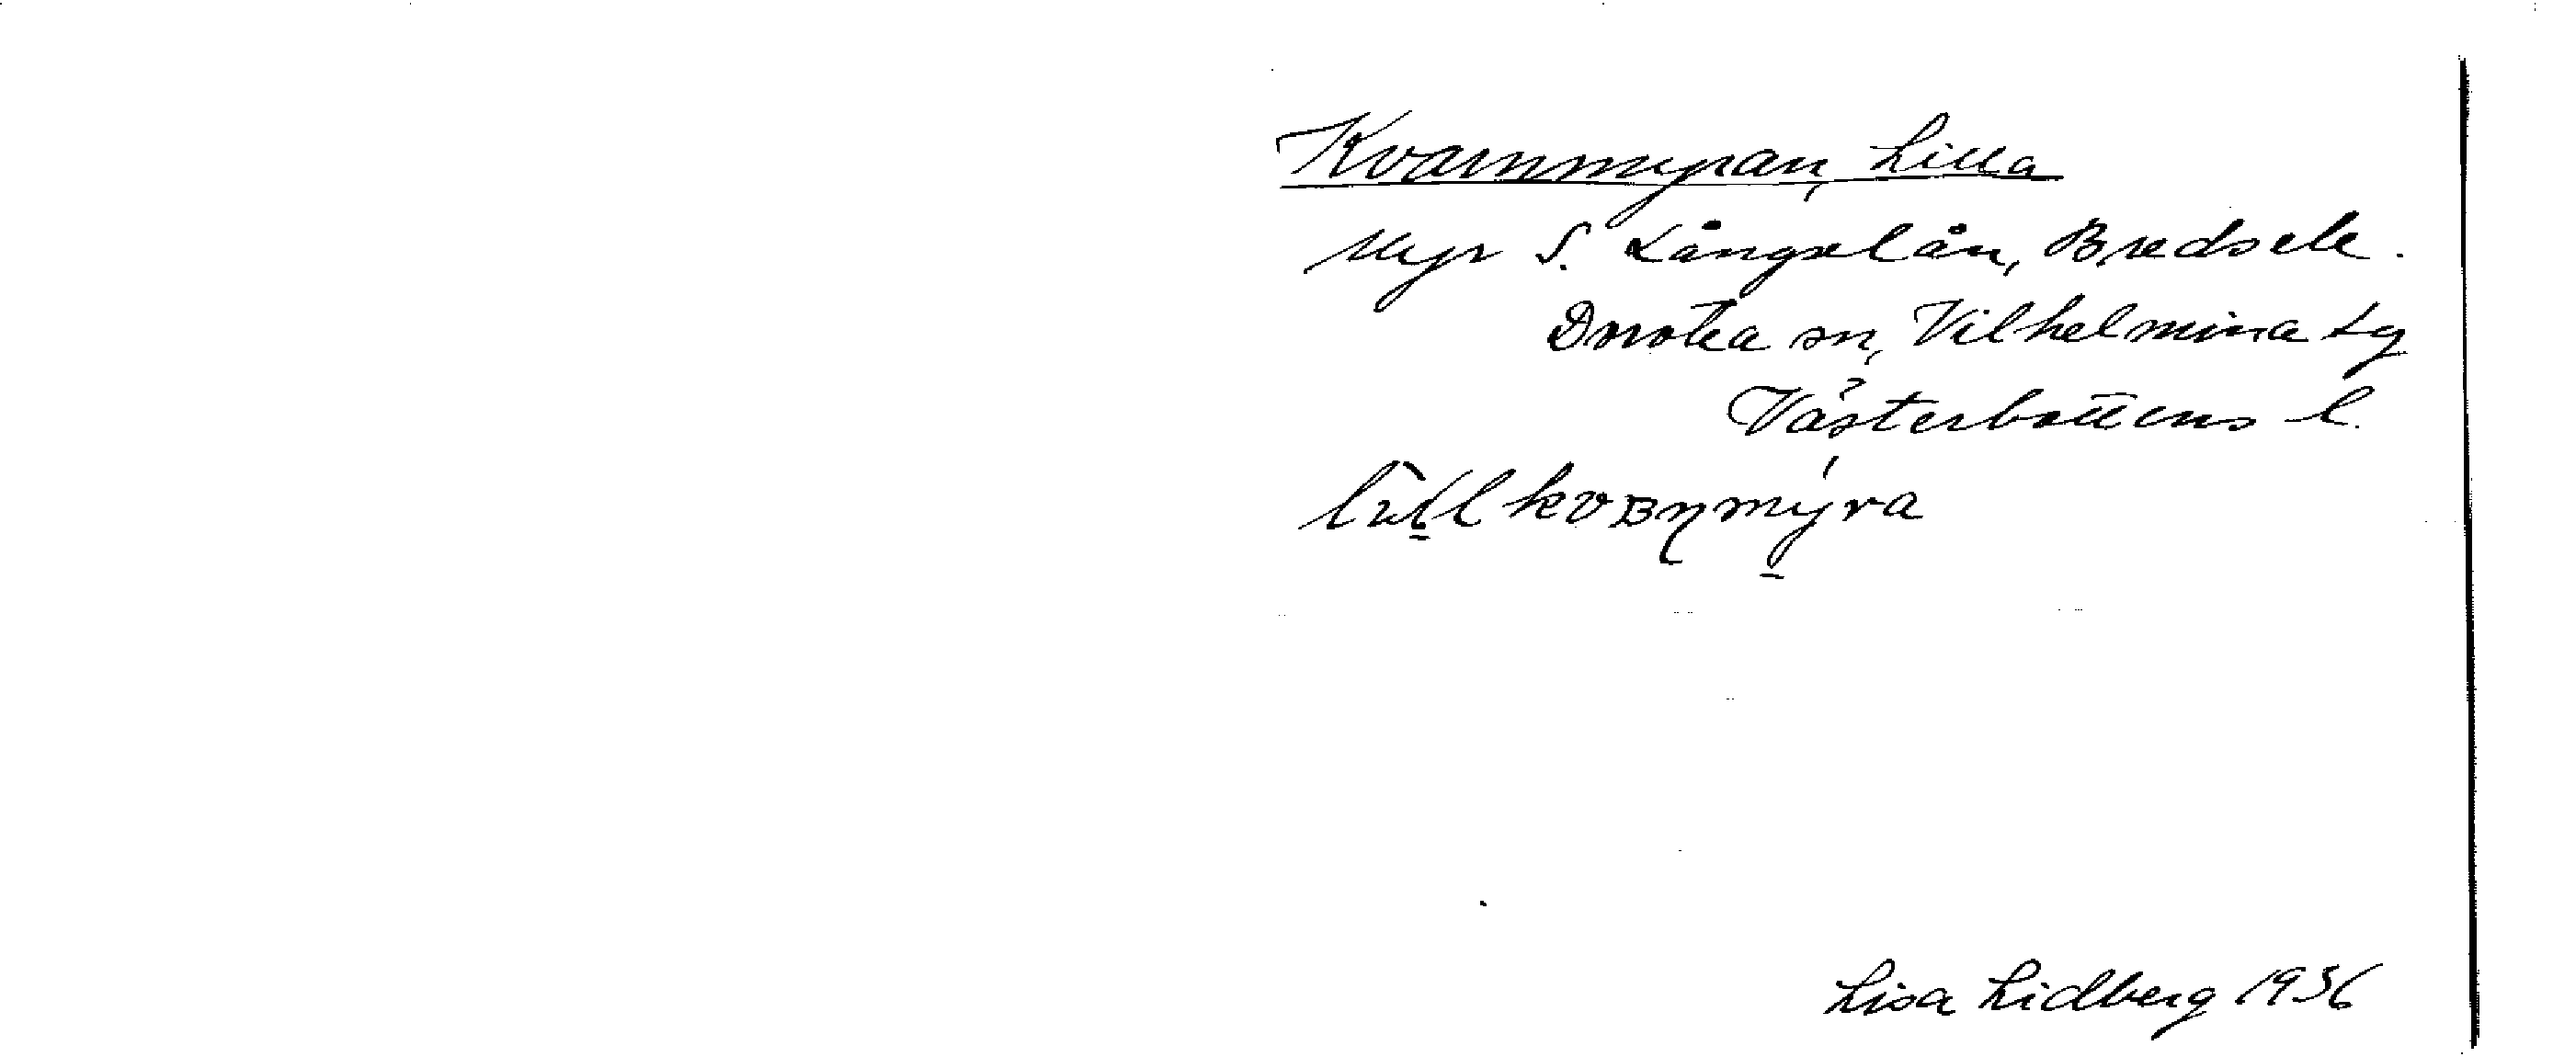 Kvarnmyran, Lilla
Myr S. Långselån, Bredsele.
Dorotea sn, Vilhelmina tg
Västerbottens l.
kvBnmy̱ra
Lisa Lidberg 1936